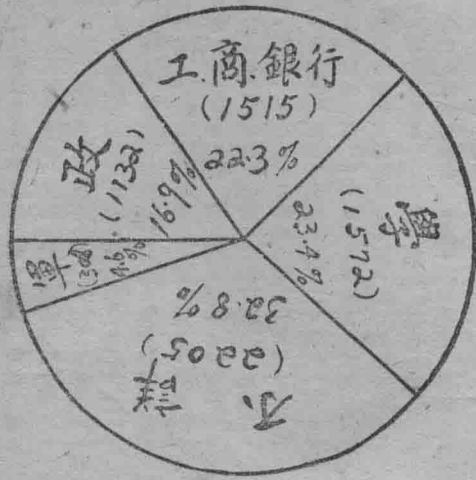 工.商.銀行
(1515)
22.3%
學
(1572)
23.4%
不詳
(2205)
32.8%
軍
4.6%
政
(1132)
16.9%